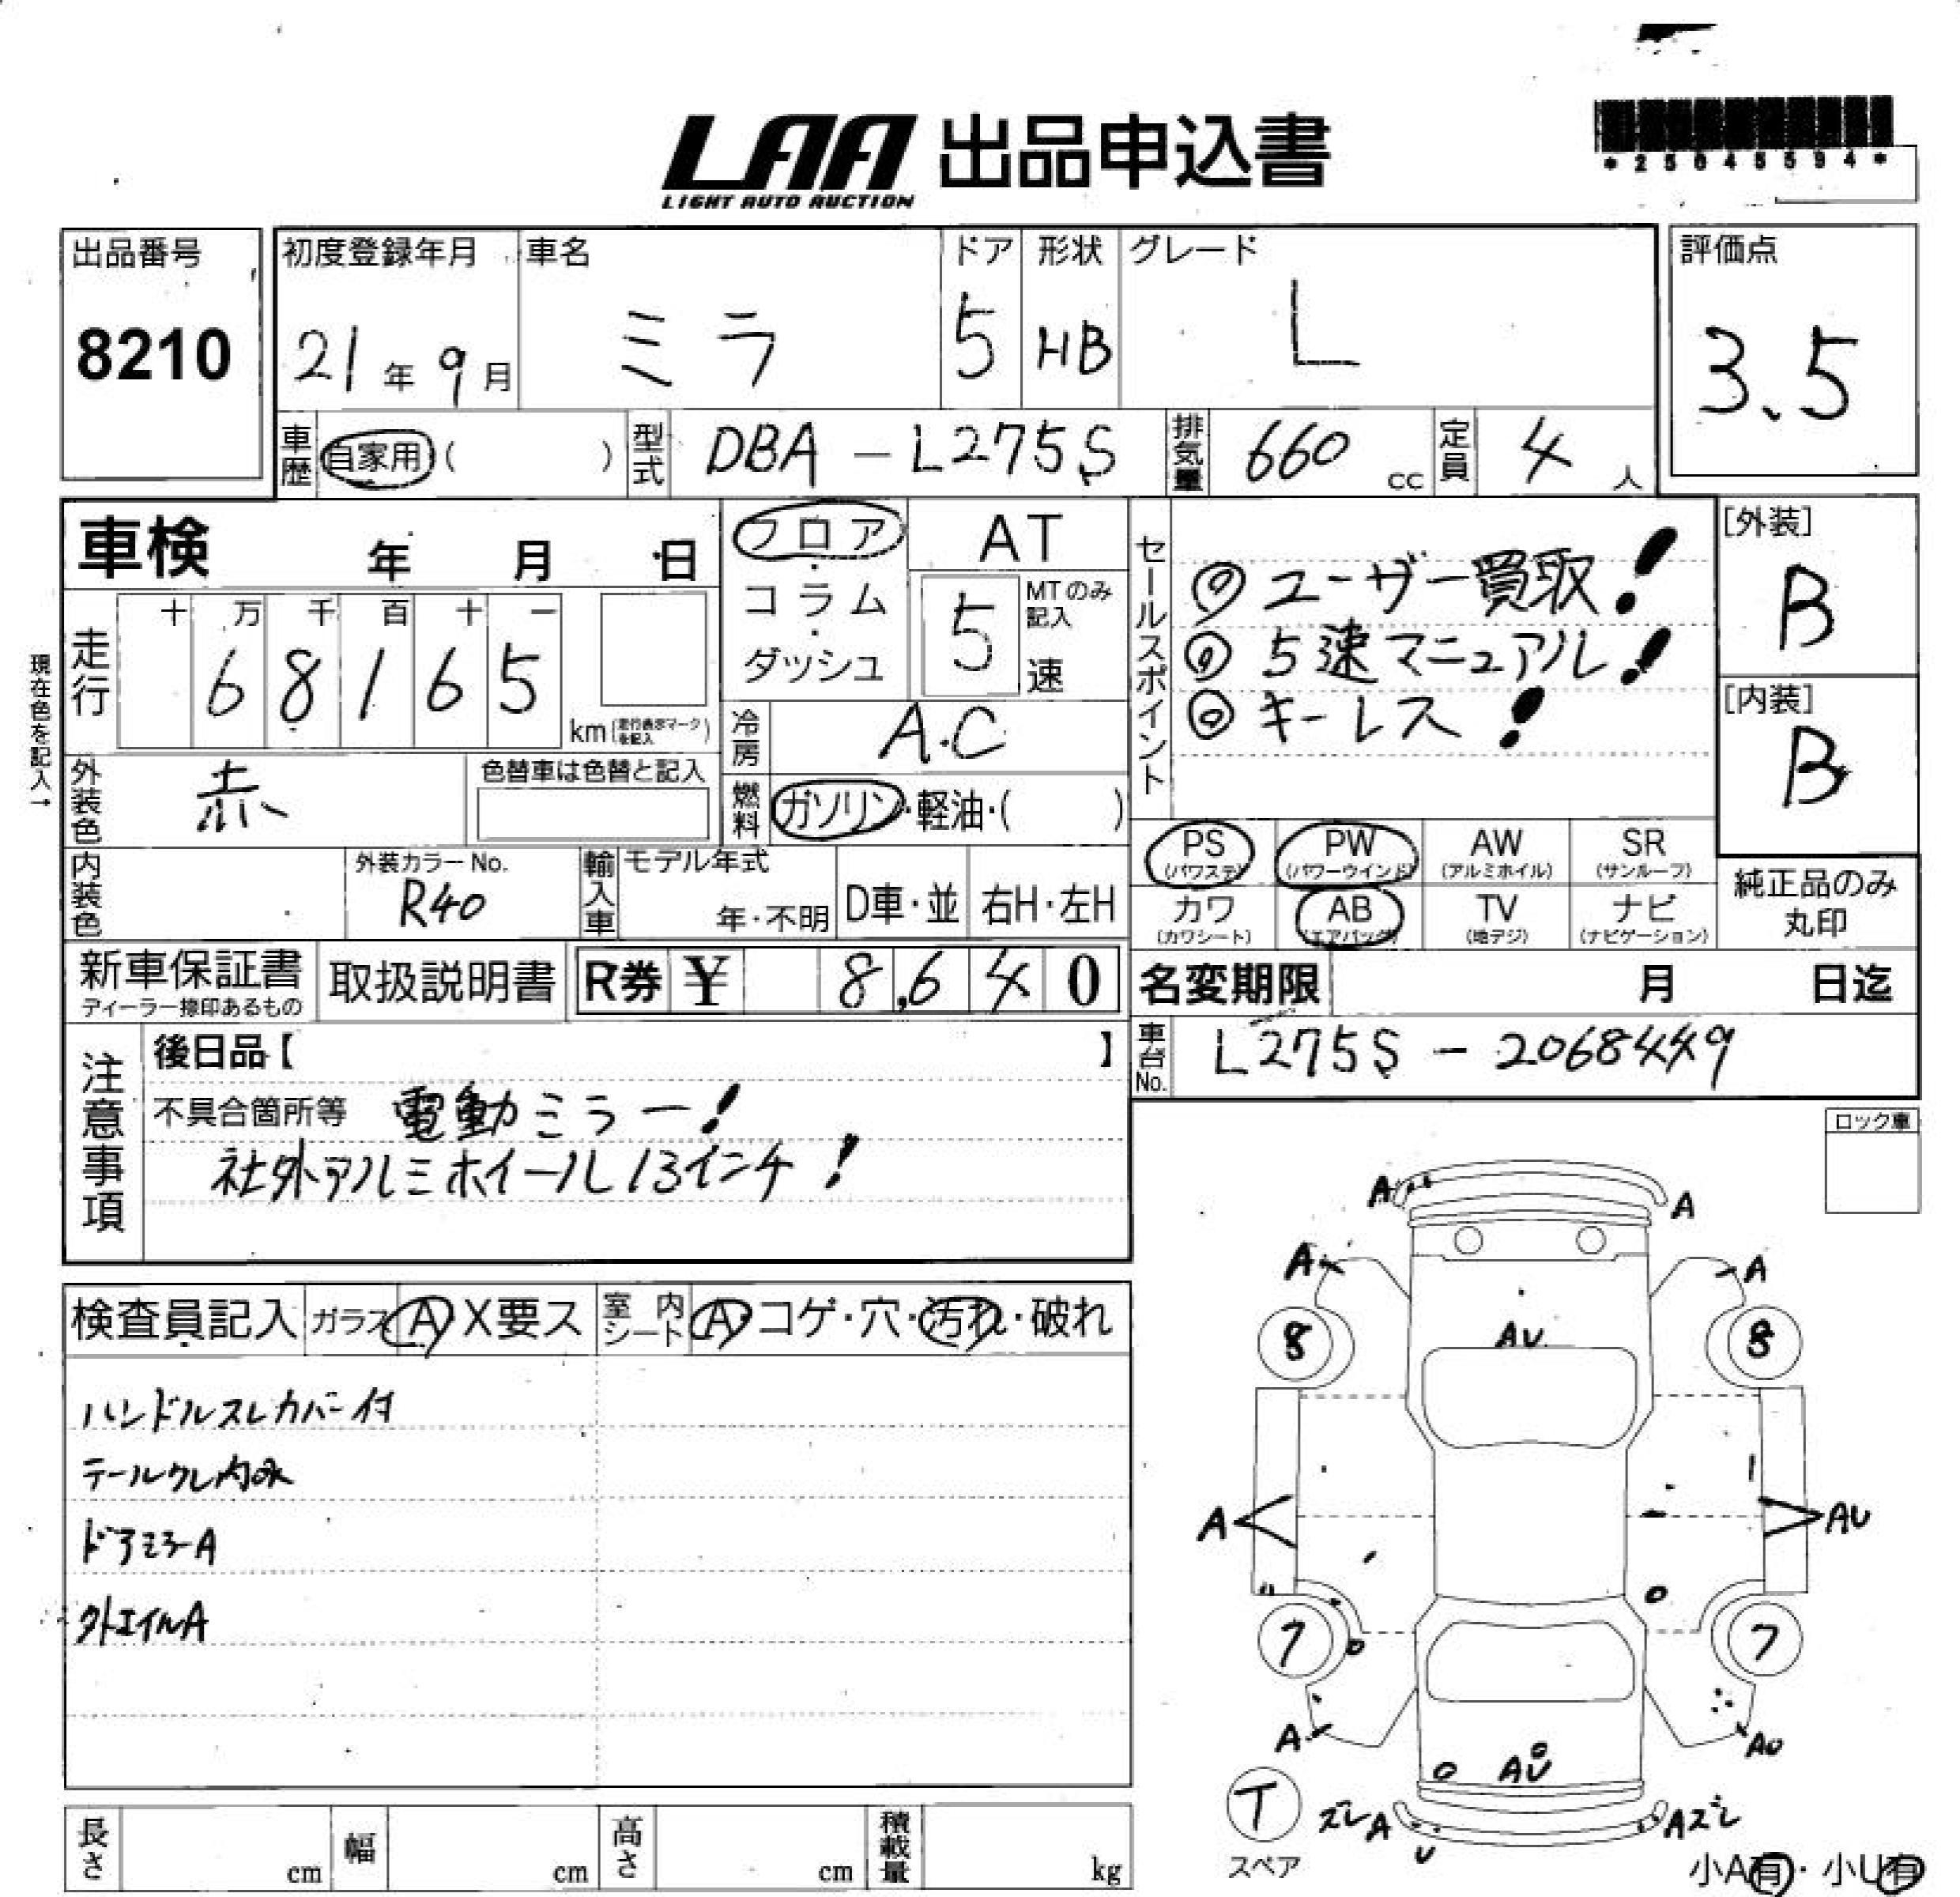 LAA 出品申込書
LIGHT AUTO AUCTION
*25045594*
出品番号
8210
初度登録年月
21年9月
車名
ミラ
ドア
5
形状
HB
グレード
L
評価点
3.5
車歴
自家用( )
型式
DBA-L275S
排気量
660 cc
定員
4人
車検 年 月 日
フロア・コラム・ダッシュ
AT
5
MTのみ記入
速
現在色を記入→
走行
十万千百十一
68165
km(走行表示マークを記入)
冷房
A.C
外装色
赤
色替車は色替と記入
燃料
ガソリン・軽油・( )
内装色
外装カラーNo.
R40
輸入車
モデル年式
年・不明
D車・並
右H・左H
新車保証書
ディーラー捺印あるもの
取扱説明書
R券 ¥ 8,640
セールスポイント
◎ユーザー買取!
◎5速マニュアル!
◎キーレス!
[外装]
B
[内装]
B
PS
(パワステ)
PW
(パワーウインド)
AW
(アルミホイル)
SR
(サンルーフ)
カワ
(カワシート)
AB
(エアバッグ)
TV
(地デジ)
ナビ
(ナビゲーション)
純正品のみ
丸印
名変期限 月 日迄
車台No.
L275S-2068449
注意事項
後日品【 】
不具合箇所等 電動ミラー!
社外アルミホイール13インチ!
ロック車
検査員記入
ガラス A X要ス
室内シート A・コゲ・穴・汚れ・破れ
ハンドルスレカバー付
テールクレ内水
ドアミラーA
外ホイルA
A A
A A
8 8
AU
A AU
7 7
A AU
AU
T
スペア
ズレA Aズレ
U
小A有・小U有
長さ cm
幅 cm
高さ cm
積載量 kg